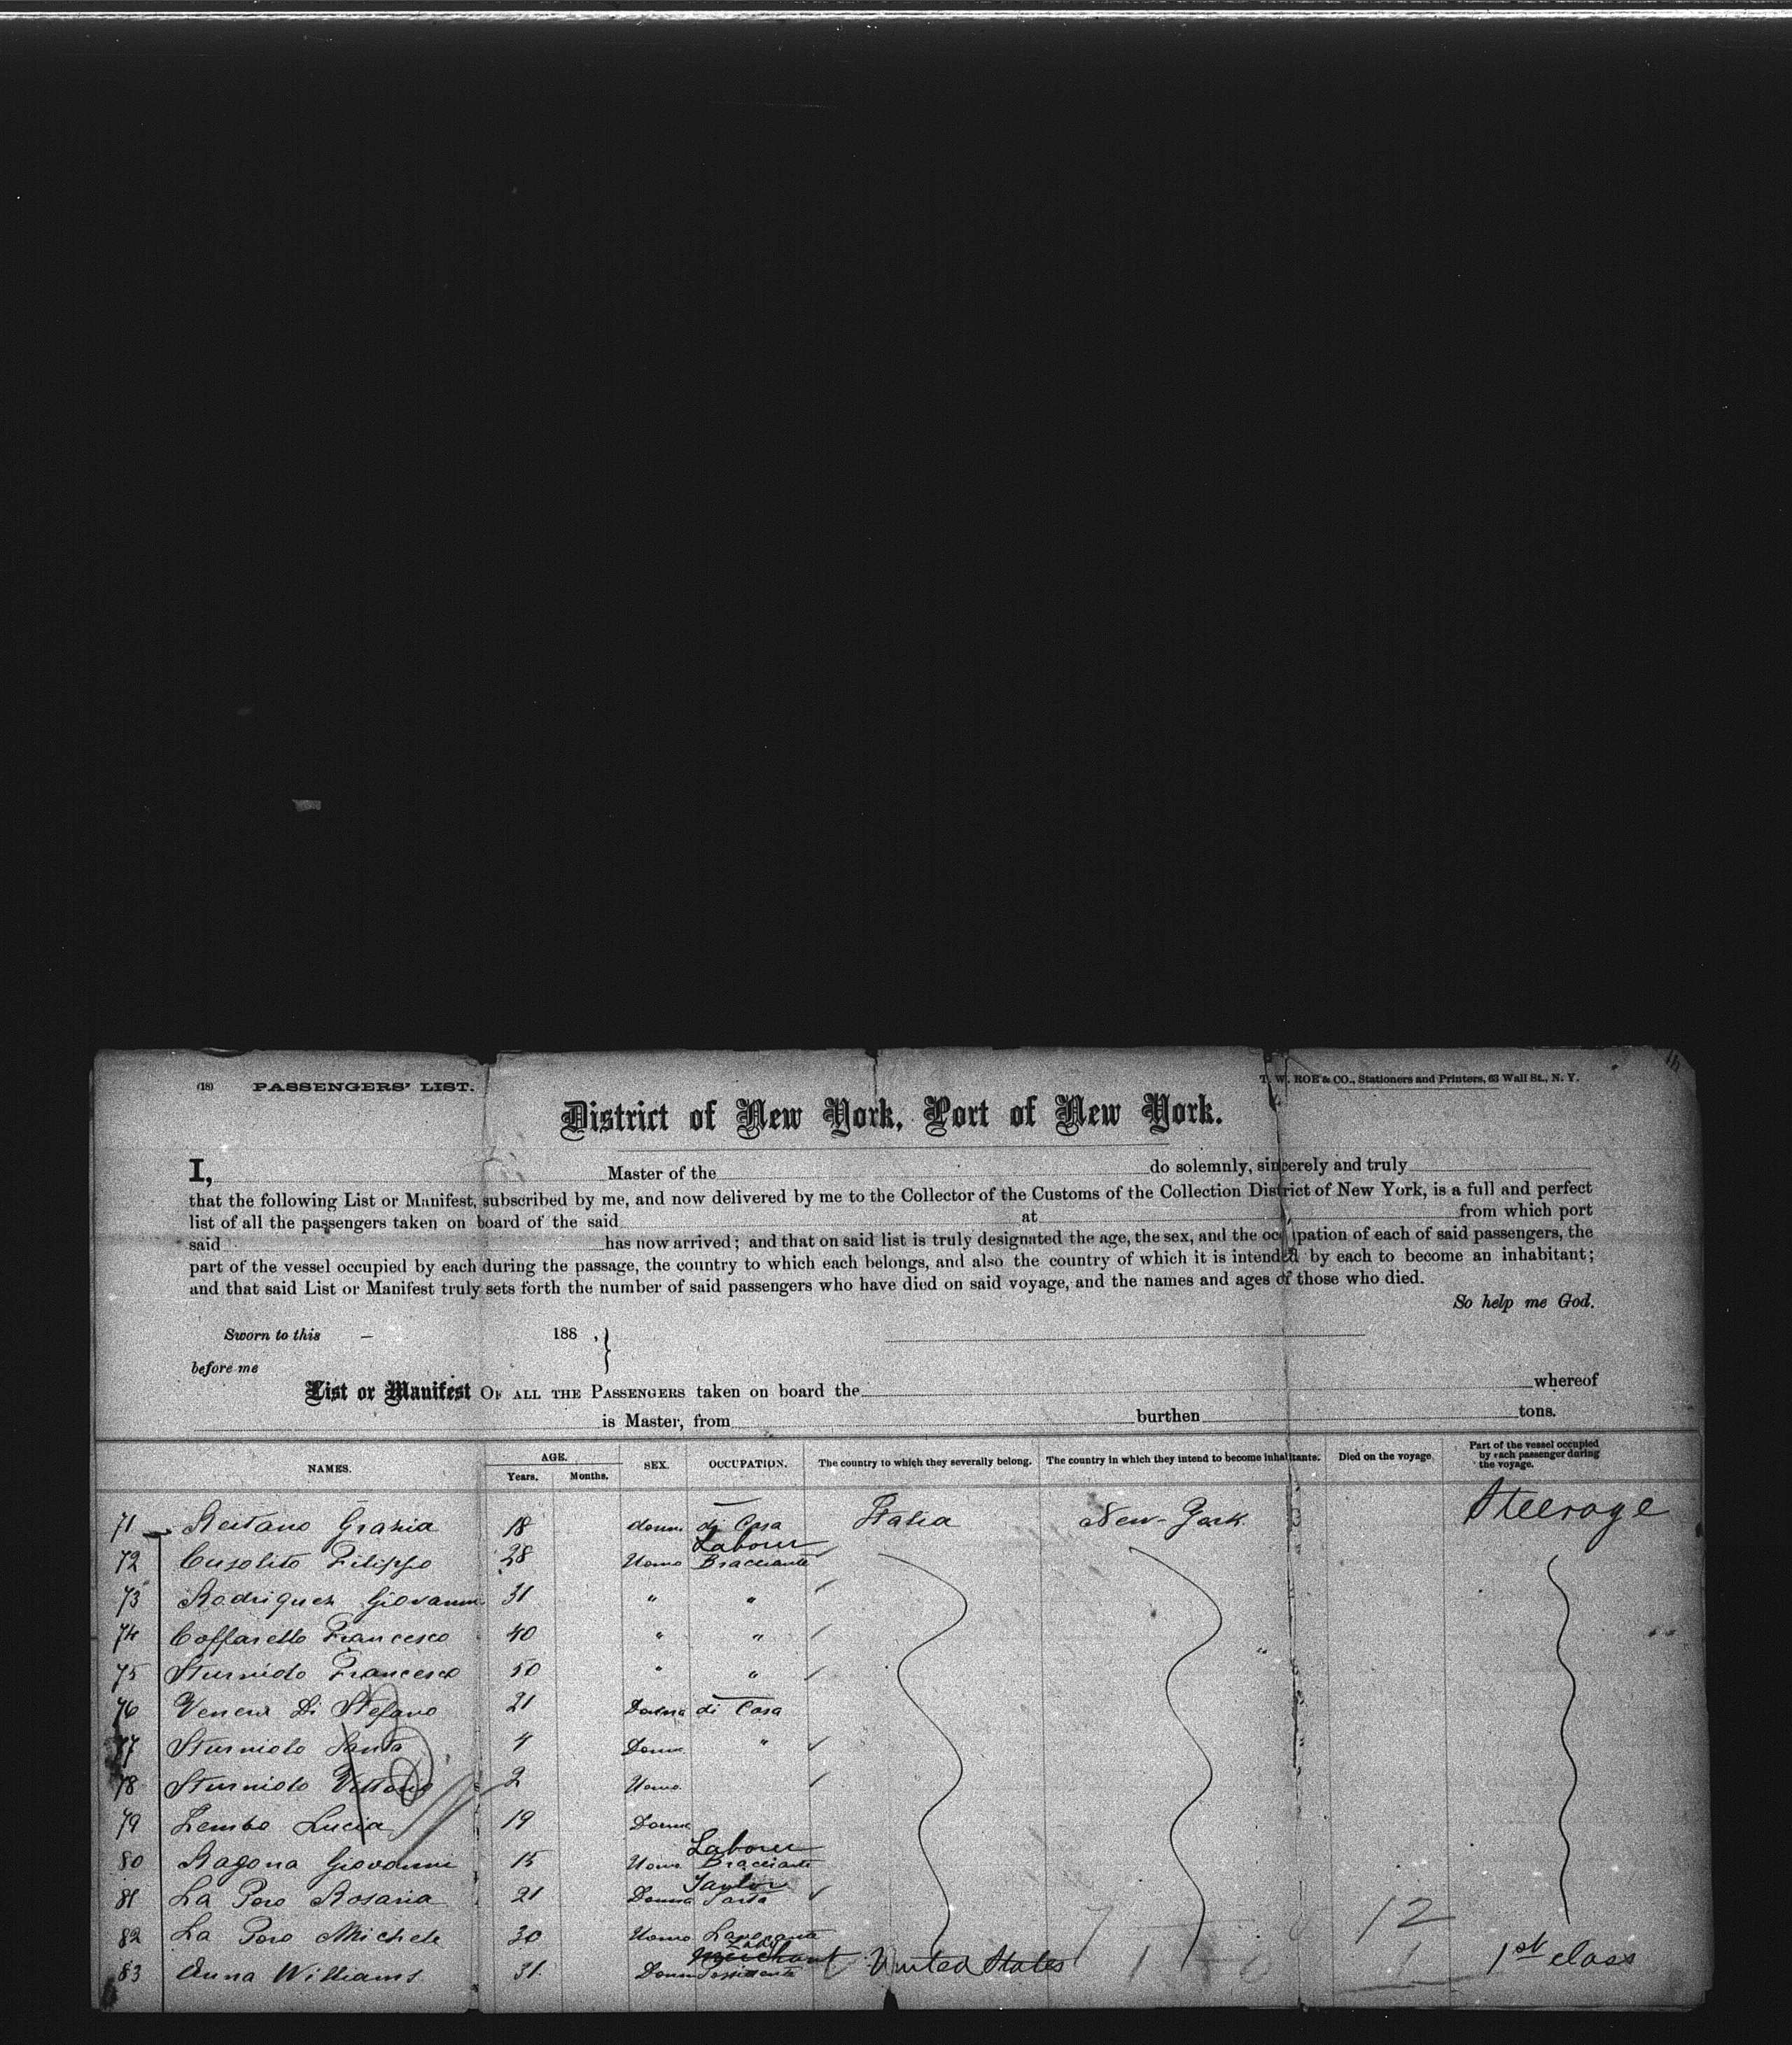 14
(18) PASSENGERS' LIST. T. W. ROE & CO., Stationers and Printers, 63 Wall St., N. Y.
District of New York, Port of New York.
I, Master of the do solemnly, sincerely and truly
that the following List or Manifest, subscribed by me, and now delivered by me to the Collector of the Customs of the Collection District of New York, is a full and perfect
list of all the passengers taken on board of the said at from which port
said has now arrived; and that on said list is truly designated the age, the sex, and the occupation of each of said passengers, the
part of the vessel occupied by each during the passage, the country to which each belongs, and also the country of which it is intended by each to become an inhabitant;
and that said List or Manifest truly sets forth the number of said passengers who have died on said voyage, and the names and ages of those who died.
So help me God.
Sworn to this – 188 ,
before me
List or Manifest OF ALL THE PASSENGERS taken on board the whereof
is Master, from burthen tons.
NAMES. AGE. Years. Months. SEX. OCCUPATION. The country to which they severally belong. The country in which they intend to become inhabitants. Died on the voyage. Part of the vessel occupied by each passenger during the voyage.
71 Reitano Grazia 18 donna di Casa Italia New-York Steerage
Labourer
72 Cusolito Filippo 28 Uomo Bracciante
73 Rodriguez Giovanni 31 " "
74 Coffarello Francesco 40 " " "
75 Sturniolo Francesco 50 " "
76 Venera Di Stefano 21 Donna di Casa
77 Sturniolo Santa 4 Donna "
78 Sturniolo Vittorio 2 Uomo
79 Lembo Lucia 19 Donna
Labourer
80 Ragona Giovanni 15 Uomo Bracciante
Taylor
81 La Poro Rosaria 21 Donna Sarta
82 La Poro Michele 30 Uomo Lavorante 12
Lady
merchant
83 Anna Williams 31 Donna Possidente United States 1 1st class